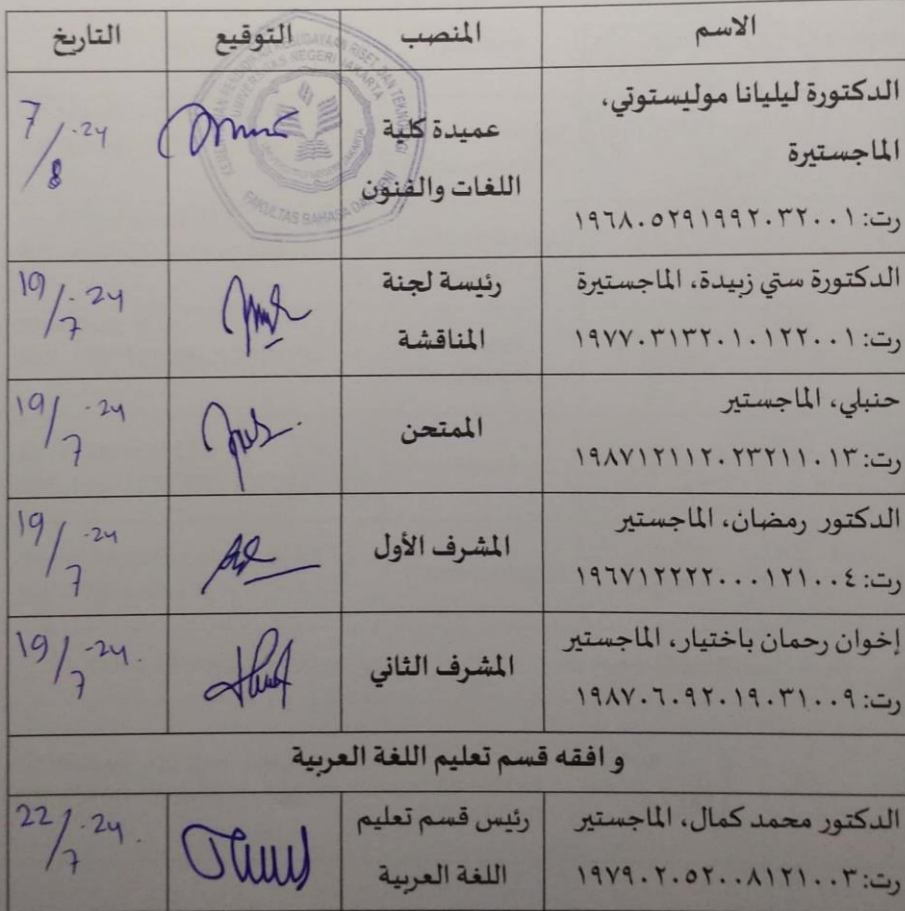 الاسم المنصب التوقيع التاريخ
الدكتورة ليليانا موليستوتي،
الماجستيرة
رت: ١٩٦٨٠٥٢٩١٩٩٢٠٣٢٠٠١
عميدة كلية
اللغات والفنون
UNIVERSITAS NEGERI JAKARTA
FAKULTAS BAHASA DAN SENI
7/8-24
الدكتورة ستي زبيدة، الماجستيرة
رت: ١٩٧٧٠٣١٣٢٠١٠١٢٢٠٠١
رئيسة لجنة
المناقشة
19/7-24
حنبلي، الماجستير
رت: ١٩٨٧١٢١١٢٠٢٣٢١١٠١٣
الممتحن
19/7-24
الدكتور رمضان، الماجستير
رت: ١٩٦٧١٢٢٢٢٠٠٠١٢١٠٠٤
المشرف الأول
19/7-24
إخوان رحمان باختيار، الماجستير
رت: ١٩٨٧٠٦٠٩٢٠١٩٠٣١٠٠٩
المشرف الثاني
19/7-24.
و افقه قسم تعليم اللغة العربية
الدكتور محمد كمال، الماجستير
رت: ١٩٧٩٠٢٠٥٢٠٠٨١٢١٠٠٣
رئيس قسم تعليم
اللغة العربية
22/7-24.